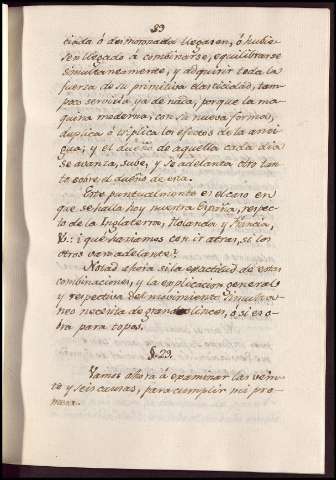 89
ciada ó desmoronada llegasen, ó hubie-
sen llegado à combinarse, equilibrarse
simultaneamente, y adquirir toda la
fuerza de su primitiva elasticidad, tam-
poco serviría ya de nada, porque la ma-
quina moderna, con su nueva forma,
duplica ó triplica los efectos de la anti-
gua; y el dueño de aquella cada dia
se avanza, sube, y se adelanta otro tan-
to sobre el dueño de esta.
Este puntualmente es el caso en
que se halla hoy nuestra España, respec-
to de la Inglaterra, Holanda y Francia,
&.: ¿ que hariamos con ir atras, si los
otros van adelante?
Notad ahora si la exactitud de estas
combinaciones, y la explicacion general
y respectiva del movimiento simulta-
neo necesita de grandes linces, ó si es o-
bra para topos.
§. 29.
Vamos ahora à examinar las vein-
te y seis causas, para cumplir mi pro-
mesa.